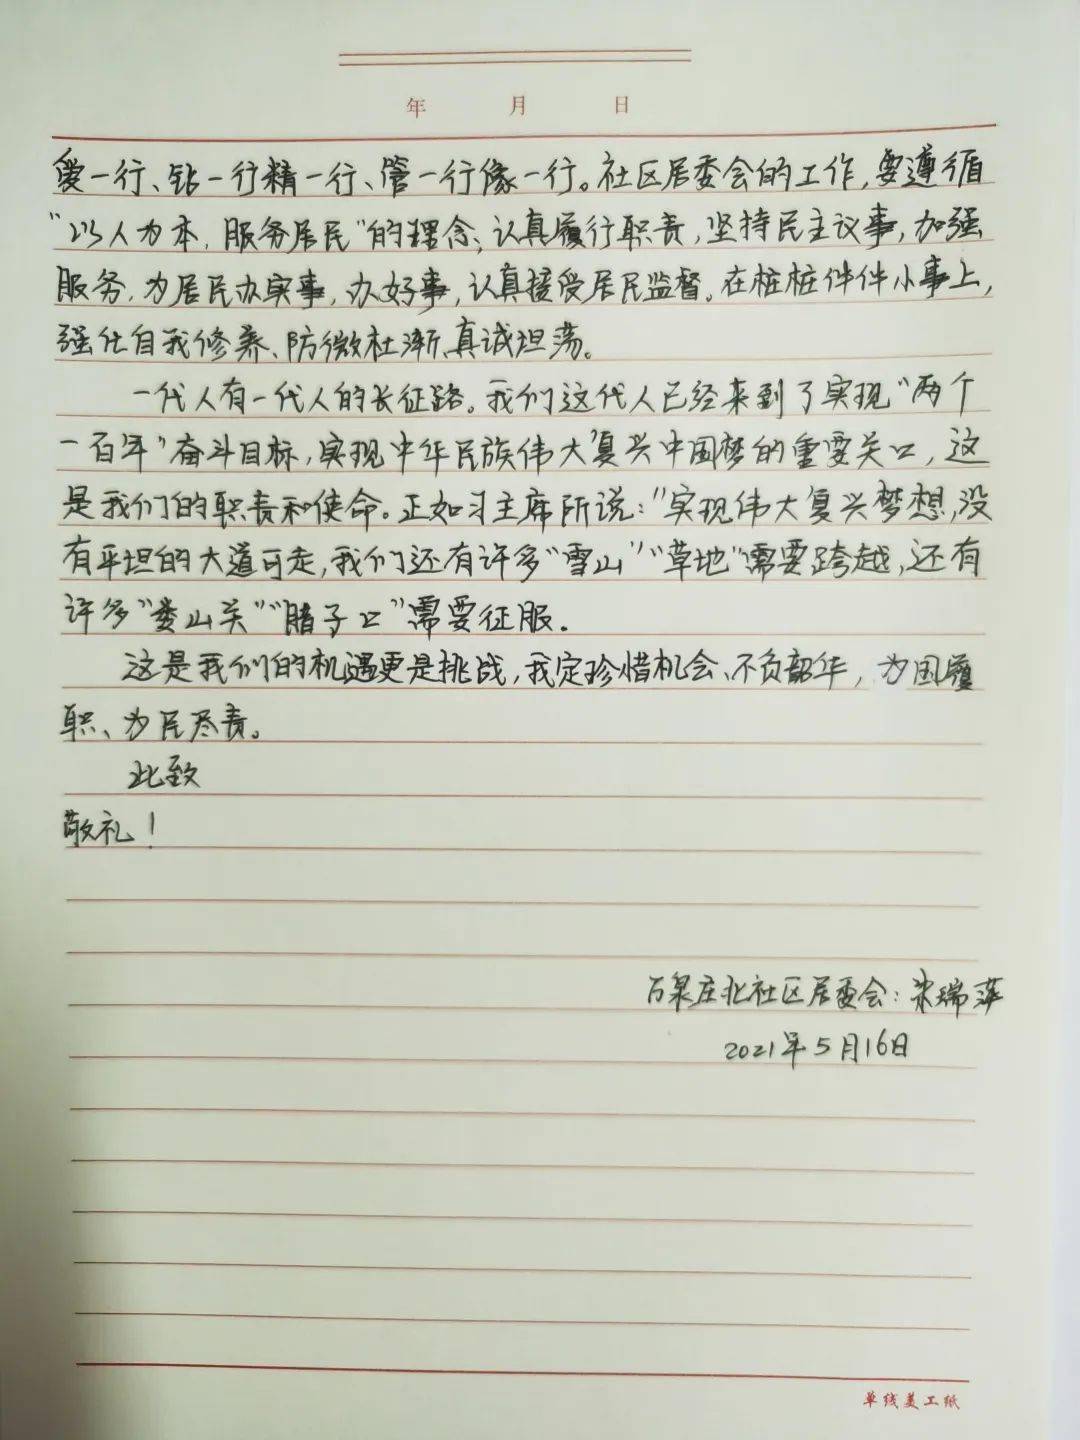 年 月 日
爱一行、钻一行精一行、管一行像一行。社区居委会的工作,要遵循
"以人为本,服务居民"的理念,认真履行职责,坚持民主议事,加强
服务,为居民办实事,办好事,认真接受居民监督。在桩桩件件小事上,
强化自我修养、防微杜渐、真诚坦荡。
一代人有一代人的长征路。我们这代人已经来到了实现"两个
一百年"奋斗目标,实现中华民族伟大复兴中国梦的重要关口,这
是我们的职责和使命。正如习主席所说:"实现伟大复兴梦想,没
有平坦的大道可走,我们还有许多"雪山""草地"需要跨越,还有
许多"娄山关""腊子口"需要征服.
这是我们的机遇更是挑战,我定珍惜机会、不负韶华,为国履
职、为民尽责。
此致
敬礼!
万泉庄北社区居委会:宋瑞萍
2021年5月16日
单线美工纸